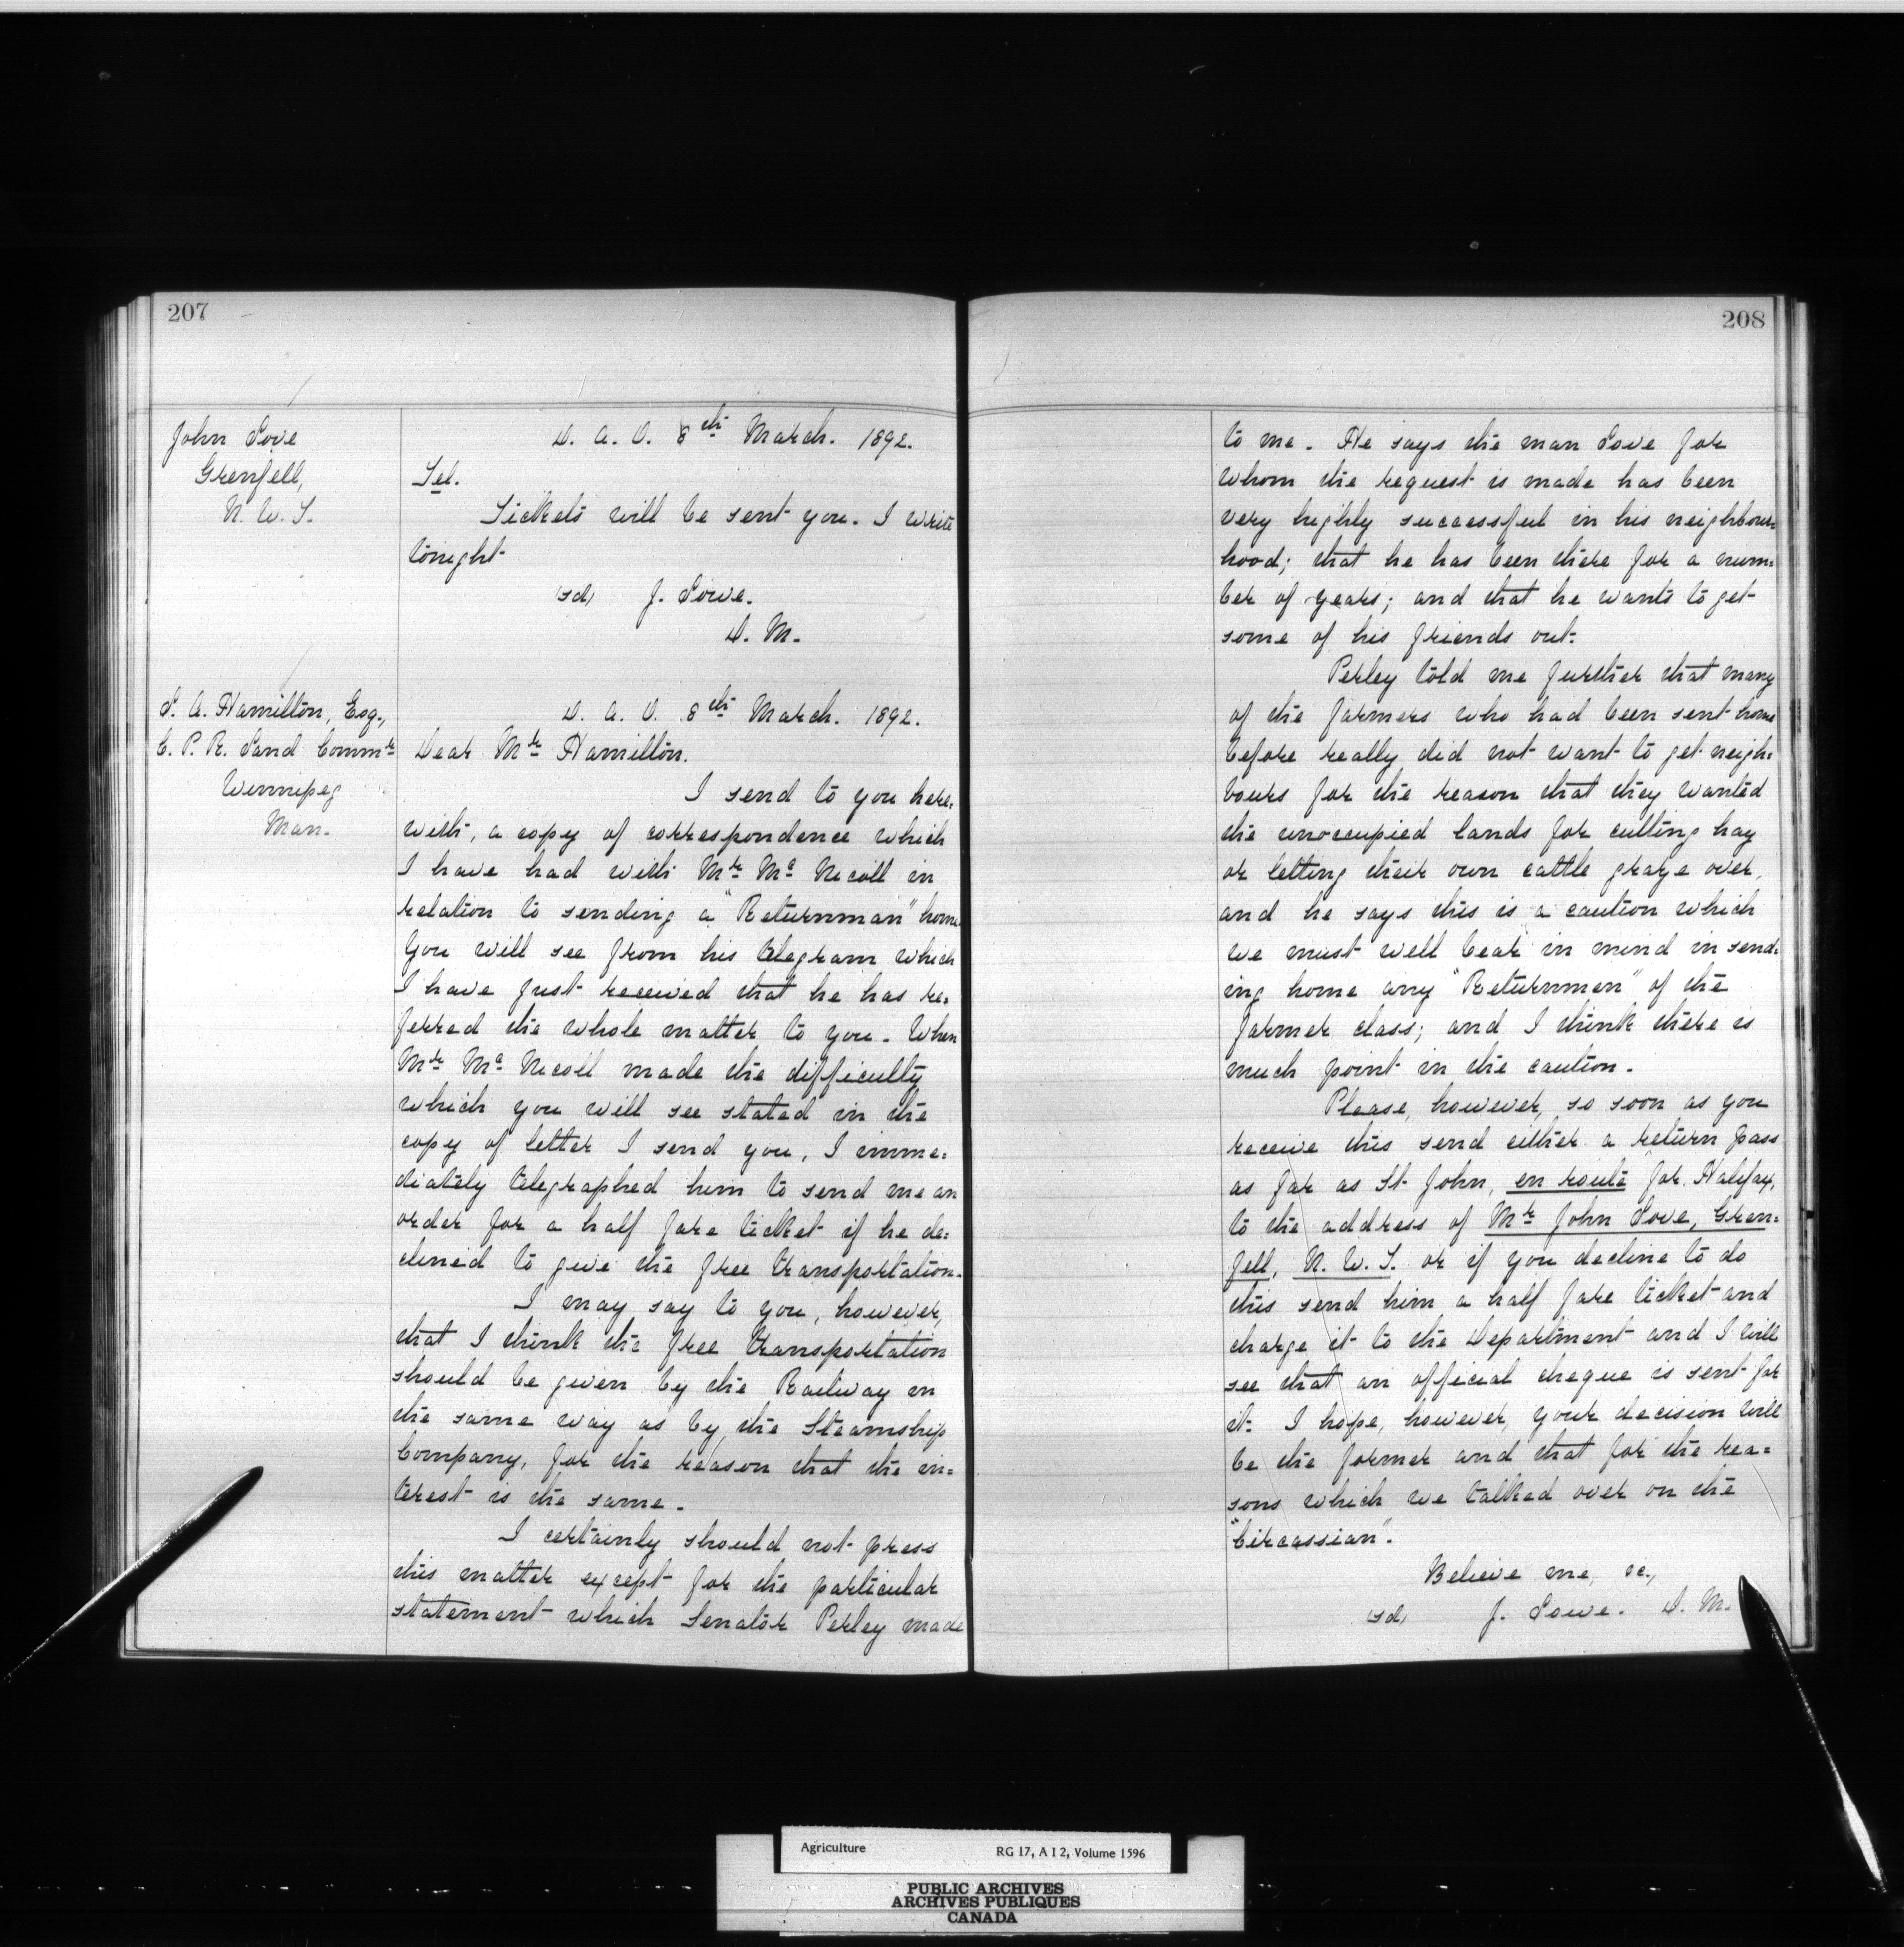 207
John Love
Grenfell,
N. W. T.
D. A. O. 8th March. 1892.
Tel.
Tickets will be sent you. I write
tonight
(sd) J. Lowe.
D. M.
L. A. Hamilton, Esq.,
C. P. R. Land Commr
Winnipeg
Man.
D. A. O. 8th March. 1892.
Dear Mr Hamilton.
I send to you here=
with, a copy of correspondence which
I have had with Mr Mc Nicoll in
relation to sending a "Returnman" home.
You will see from his telegram which
I have just received that he has re=
ferred the whole matter to you. When
Mr Mc Nicoll made the difficulty
which you will see stated in the
copy of letter I send you, I imme=
diately telegraphed him to send me an
order for a half fare ticket if he de=
clined to give the free transportation.
I may say to you, however,
that I think the free transportation
should be given by the Railway in
the same way as by the Steamship
Company, for the reason that the in=
terest is the same.
I certainly should not press
this matter except for the particular
statement which Senator Perley made
208
to me. He says the man Love for
whom the request is made has been
very highly successful in his neighbour=
hood; that he has been there for a num=
ber of years; and that he wants to get
some of his friends out.
Perley told me further that many
of the farmers who had been sent home
before really did not want to get neigh=
bours for the reason that they wanted
the unoccupied lands for cutting hay
or letting their own cattle graze over,
and he says this is a caution which
we must well bear in mind in send=
ing home any "Returnmen" of the
farmer class; and I think there is
much point in the caution.
Please, however, so soon as you
receive this send either a return pass
as far as St. John, en route for Halifax,
to the address of Mr John Love, Gren=
fell, N. W. T. or if you decline to do
this send him a half fare ticket and
charge it to the Department and I will
see that an official cheque is sent for
it. I hope, however, your decision will
be the former and that for the rea=
sons which we talked over on the
"Circassian".
Believe me, &c.,
(sd) J. Lowe. D. M.
Agriculture RG 17, A I 2, Volume 1596
PUBLIC ARCHIVES
ARCHIVES PUBLIQUES
CANADA